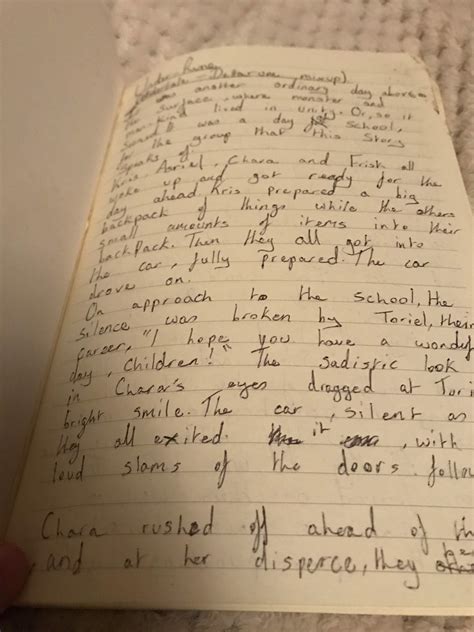 (Undertale - Deltarune mixup)
It was another ordinary day above
the surface, where monster and
man-kind lived in unity. Or, so it
seemed. It was a day school,
for the group that this story
speaks of.
Kris, Asriel, Chara and Frisk all
woke up and got ready for the
day ahead. Kris prepared a big
backpack of things while the others
small amounts of items into their
backpack. Then they all got into
the car, fully prepared. The car
drove on.
On approach to the school, the
silence was broken by Toriel, their
pareer, "I hope you have a wonderf
day, children!" The sadistic look
in Chara's eyes dragged at Tori
bright smile. The car, silent as
they all exited. it , with
loud slams of the doors follow
Chara rushed off ahead of th
, and at her disperce, they